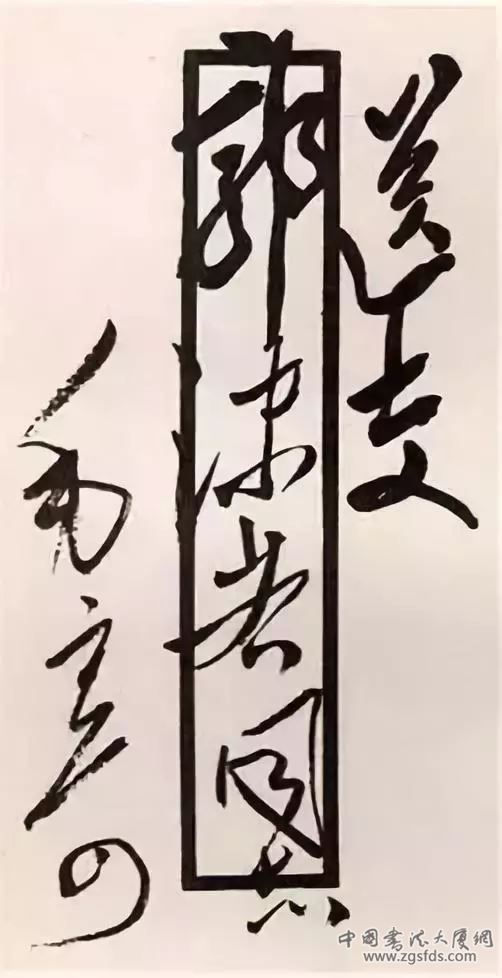 送交
郭沫若同志
毛寄
中国书法大厦网
www.zgsfds.com